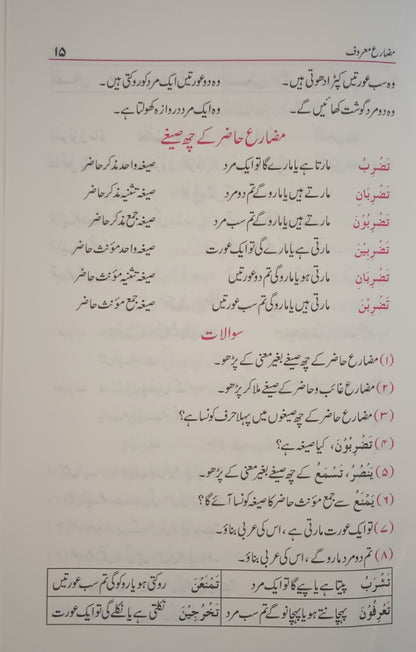 مضارع معروف ۱۵
وہ سب عورتیں کپڑا دھوتی ہیں۔ وہ دو عورتیں ایک مرد کو روکتی ہیں۔
وہ دو مرد گوشت کھائیں گے۔ وہ ایک مرد دروازہ کھولتا ہے۔
مضارع حاضر کے چھ صیغے
تَضْرِبُ مارتا ہے یا مارے گا تو ایک مرد صیغہ واحد مذکر حاضر
تَضْرِبَانِ مارتے ہیں یا مارو گے تم دو مرد صیغہ تثنیہ مذکر حاضر
تَضْرِبُوْنَ مارتے ہیں یا مارو گے تم سب مرد صیغہ جمع مذکر حاضر
تَضْرِبِيْنَ مارتی ہے یا مارے گی تو ایک عورت صیغہ واحد مؤنث حاضر
تَضْرِبَانِ مارتی ہو یا مارو گی تم دو عورتیں صیغہ تثنیہ مؤنث حاضر
تَضْرِبْنَ مارتی ہیں یا مارو گی تم سب عورتیں صیغہ جمع مؤنث حاضر
سوالات
(۱) مضارع حاضر کے چھ صیغے بغیر معنی کے پڑھو۔
(۲) مضارع غائب و حاضر کے صیغے ملا کر پڑھو۔
(۳) مضارع حاضر کے چھ صیغوں میں پہلا حرف کونسا ہے؟
(۴) تَضْرِبُوْنَ، کیا صیغہ ہے؟
(۵) يَنْصُرُ، تَسْمَعُ کے چھ صیغے بغیر معنی کے پڑھو۔
(۶) يَمْنَعُ سے جمع مؤنث حاضر کا صیغہ کونسا آئے گا؟
(۷) تو ایک عورت مارتی ہے، اس کی عربی بناؤ۔
(۸) تم دو مرد مارو گے، اس کی عربی بناؤ۔
تَشْرَبُ پیتا ہے یا پیے گا تو ایک مرد تَمْنَعْنَ روکتی ہو یا روکو گی تم سب عورتیں
تَعْرِفُوْنَ پہچانتے ہو یا پہچانو گے تم سب مرد تَخْرُجِيْنَ نکلتی ہے یا نکلے گی تو ایک عورت